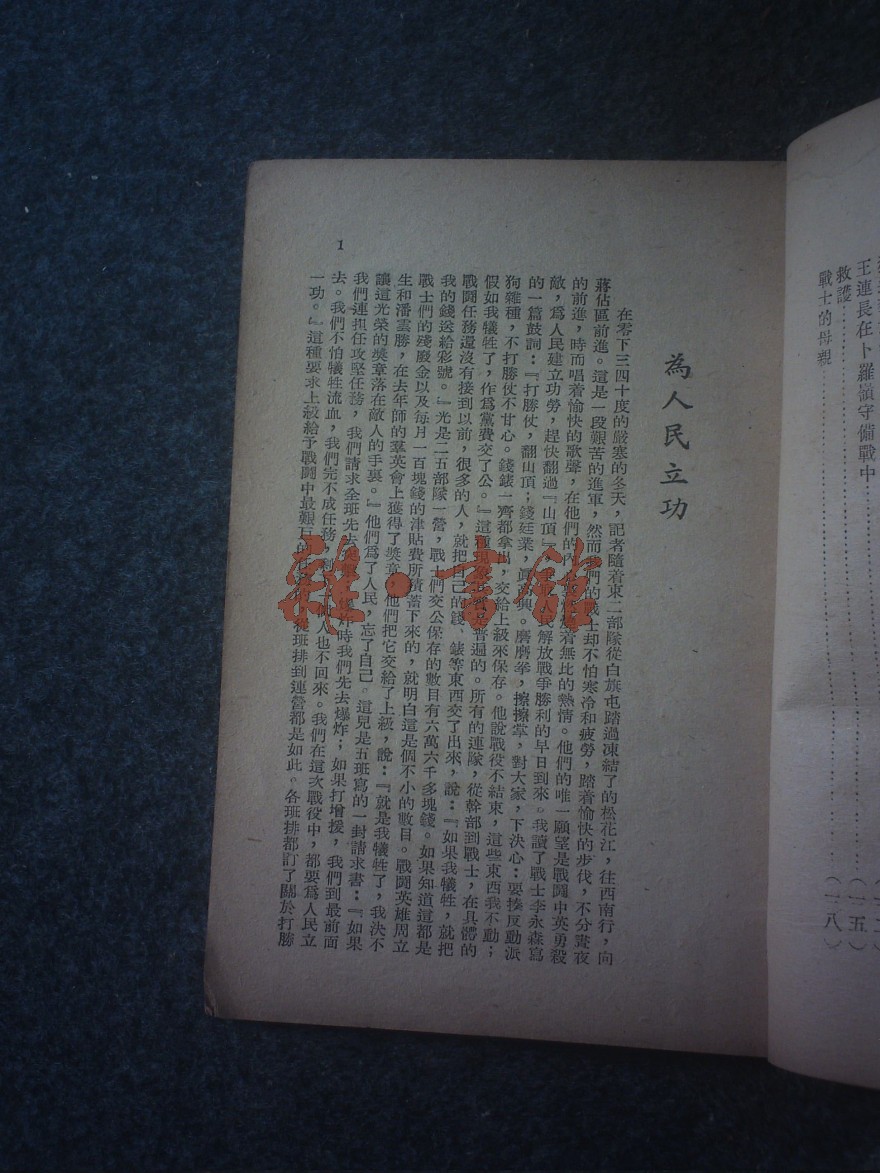 為人民立功
在零下三四十度的嚴寒的冬天，記者隨着東二部隊從白旗屯踏過凍結了的松花江，往西南行，向
蔣佔區前進。這是一段艱苦的進軍，然而我們的戰士却不怕寒冷和疲勞，踏着愉快的步伐，不分晝夜
的前進，時而唱着愉快的歌聲，在他們的內 着無比的熱情。他們的唯一願望是戰鬪中英勇殺
敵，為人民建立功勞，趕快翻過『山頂』 民解放戰爭勝利的早日到來。我讀了戰士李永森寫
的一篇鼓詞：『打勝仗，翻山頂；錢廷業，眞高興。磨磨拳，擦擦掌，對大家，下決心：要揍反動派
狗雜種，不打勝仗不甘心。錢錶一齊都拿出，交給上級來保存。他說戰役不結束，這些東西我不動；
假如我犧牲了，作為黨費交了公。』這種現象 是普遍的。所有的連隊，從幹部到戰士，在具體的
戰鬪任務還沒有接到以前，很多的人，就把自己的錢、錶等東西交了出來，說：『如果我犧牲，就把
我的錢送給彩號。』光是二五部隊一營，戰士們交公保存的數目有六萬六千多塊錢。如果知道這都是
戰士們的殘廢金以及每月一百塊錢的津貼費所積蓄下來的，就明白這是個不小的數目。戰鬪英雄周立
生和潘雲勝，在去年師的羣英會上獲得了獎章，他們把它交給了上級，說：『就是我犧牲了，我決不
讓這光榮的獎章落在敵人的手裏。』他們爲了人民，忘了自己。這兒是五班寫的一封請求書：『如果
我們連担任攻堅任務，我們請求全班先去 爆炸時我們先去爆炸；如果打增援，我們到最前面
去。我們不怕犧牲流血，我們完不成任務， 人也不回來。我們在這次戰役中，都要爲人民立
一功。』這種要求上級給予戰鬪中最艱巨的任 從班排到連營都是如此。各班排都訂了關於打勝
1
王連長在卜羅嶺守備戰中
救護……（一五）
戰士的母親……（一八）
雜·書舘